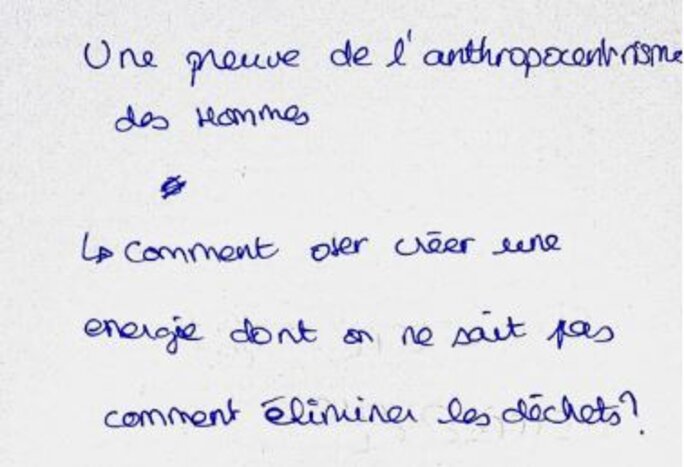 Une preuve de l'anthropocentrisme
des Hommes
↳ comment oser créer une
energie dont on ne sait pas
comment éliminer les déchets?